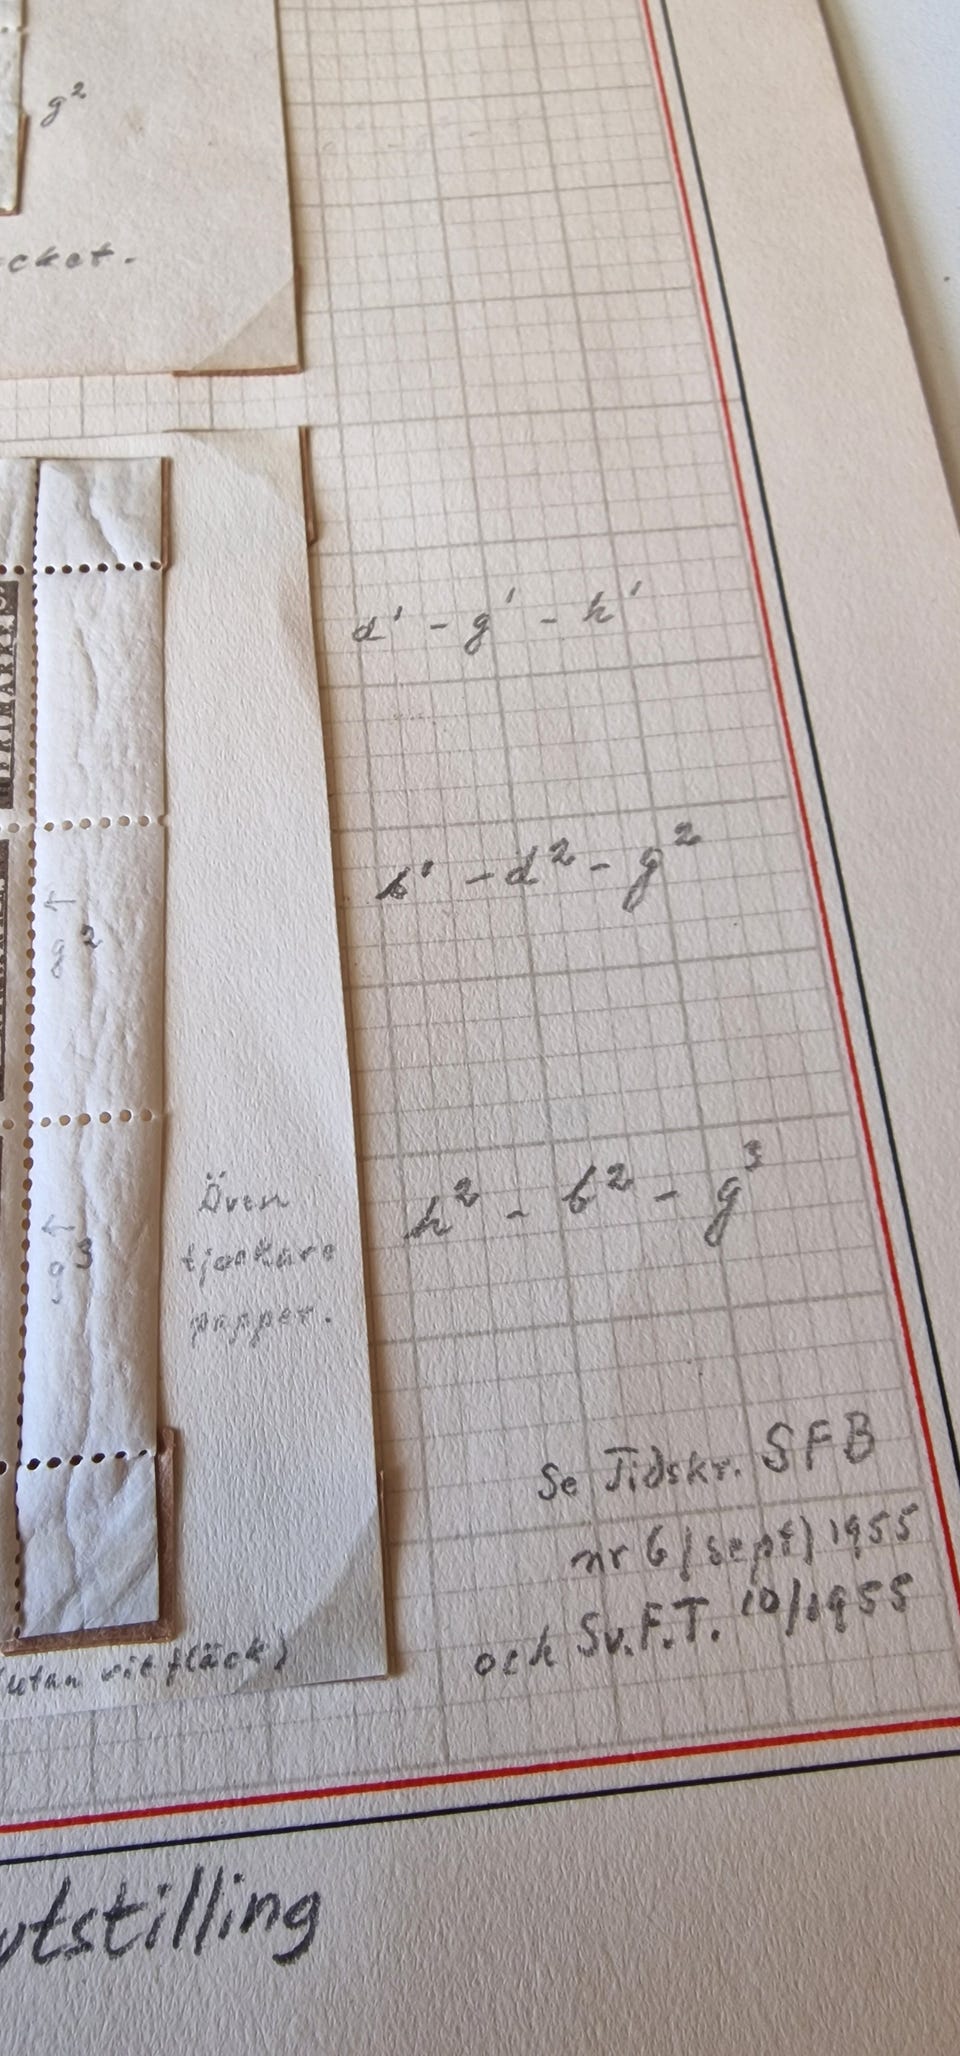 g²
cket.
FRIMÄRKE
d' - g' - h'
b' - d² - g²
← g²
h² - b² - g³
← g³
Även
tjockare
papper.
Se Tidskr. SFB
nr 6 (sept) 1955
och Sv.F.T. 10/1955
(utan vit fläck)
utstilling